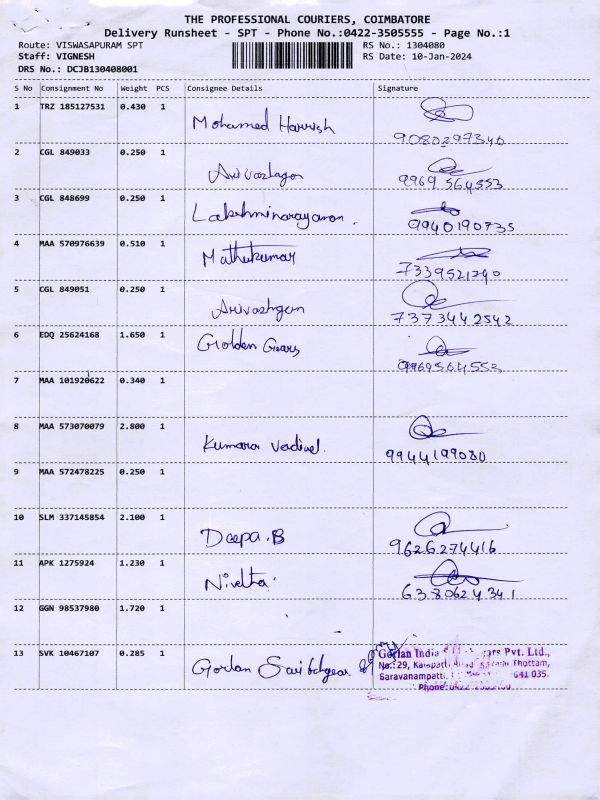 THE PROFESSIONAL COURIERS, COIMBATORE
Delivery Runsheet - SPT - Phone No.:0422-3505555 - Page No.:1
Route: VISWASAPURAM SPT RS No.: 1304080
Staff: VIGNESH RS Date: 10-Jan-2024
DRS No.: DCJB130408001
S No Consignment No Weight PCS Consignee Details Signature
1 TRZ 185127531 0.430 1
Mohamed Harrish 9080297346
2 CGL 849033 0.250 1
Arivazhagan 9969564553
3 CGL 848699 0.250 1
Lakshminarayanan. 9940190735
4 MAA 570976639 0.510 1
Mathukumar 7339521740
5 CGL 849051 0.250 1
7373442542
6 EDQ 25624168 1.650 1
Golden Gears 9969564553
7 MAA 101920622 0.340 1
8 MAA 573070079 2.800 1
Kumara Vadivel. 9944199080
9 MAA 572478225 0.250 1
10 SLM 337145854 2.100 1
Deepa.B 9626274416
11 APK 1275924 1.230 1
Nivetha. 6380624341
12 GGN 98537980 1.720 1
13 SVK 10467107 0.285 1
Gorlan Gorlan India Pvt. Ltd.,
No.:29, Thottam,
Saravanampatti, 641 035.
Phone:0422